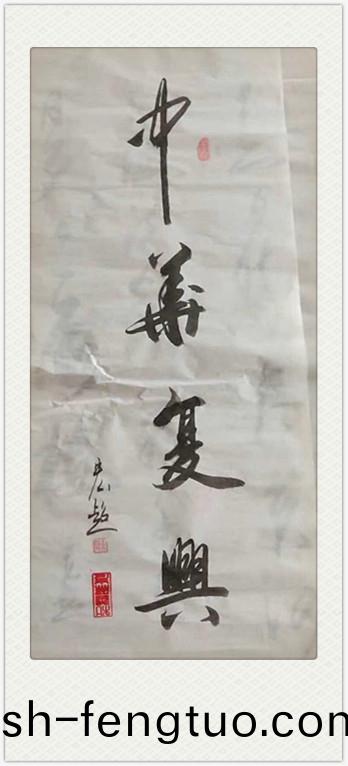 中華复興
sh-fengtuo.com